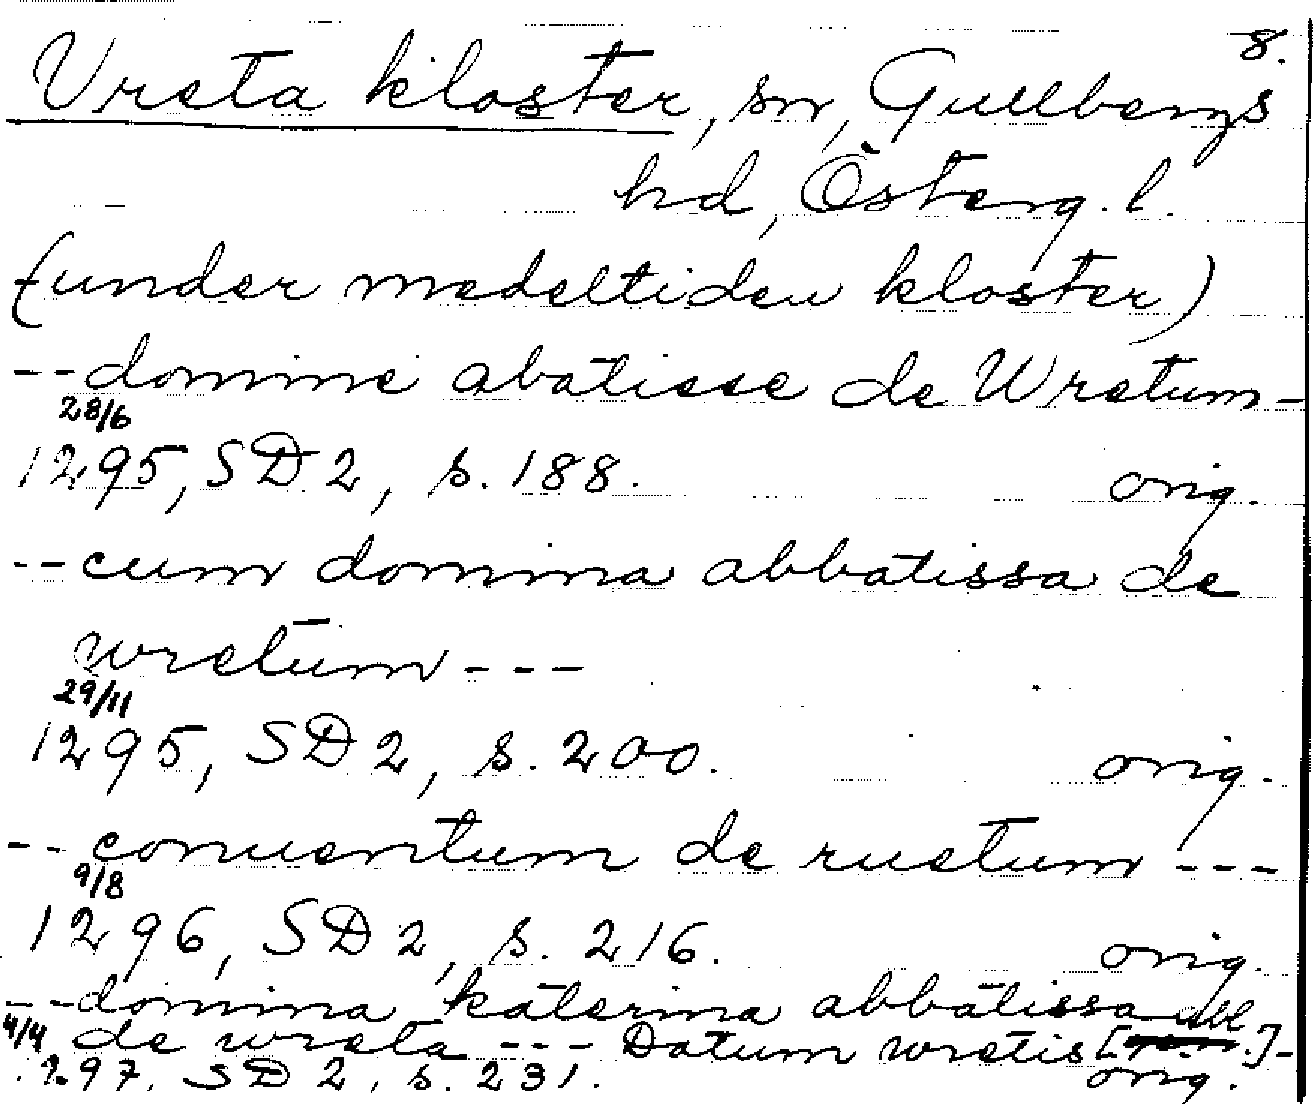 8.
Vreta kloster, sn, Gullbergs
hd, Österg. l.
(under medeltiden kloster)
--domine abatisse de Wretum-
28/6
1295, SD 2, s. 188. orig.
--cum domina abbatissa de
wretum---
29/11
1295, SD 2, s. 200. orig.
--conuentum de ruetum---
9/8
1296, SD 2, s. 216. orig.
--domina katerina abbatissa
4/4 de wreta --- Datum wretis
1297, SD 2, s. 231. orig.